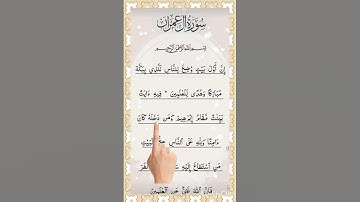 سورة آل عمران
بسم الله الرحمن الرحيم
إن أول بيت وضع للناس للذي ببكة
مباركا وهدى للعلمين * فيه ءايت
بينت مقام إبرهيم ومن دخله كان
ءامنا ولله على الناس حج البيت
من استطاع إليه
فإن الله غني عن العلمين